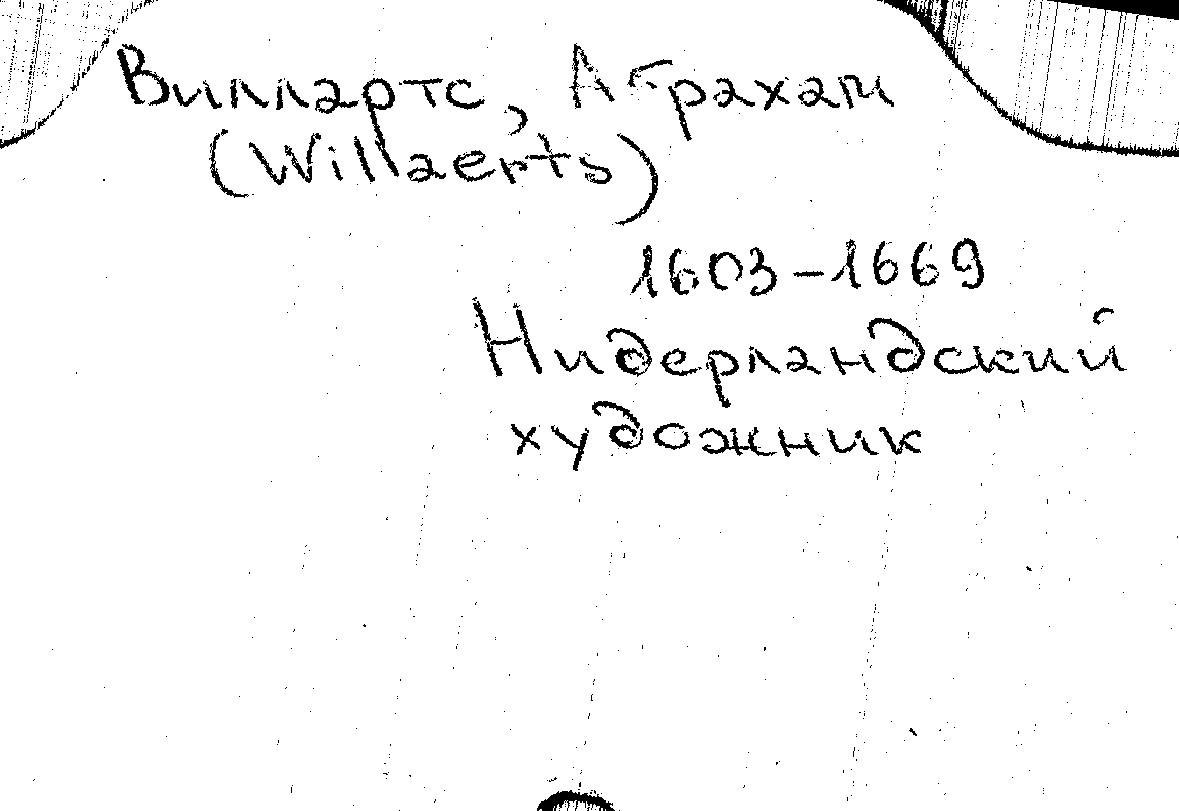 Виллартс, Абрахам
(Willaerts)
1603-1669
Нидерландский
художник